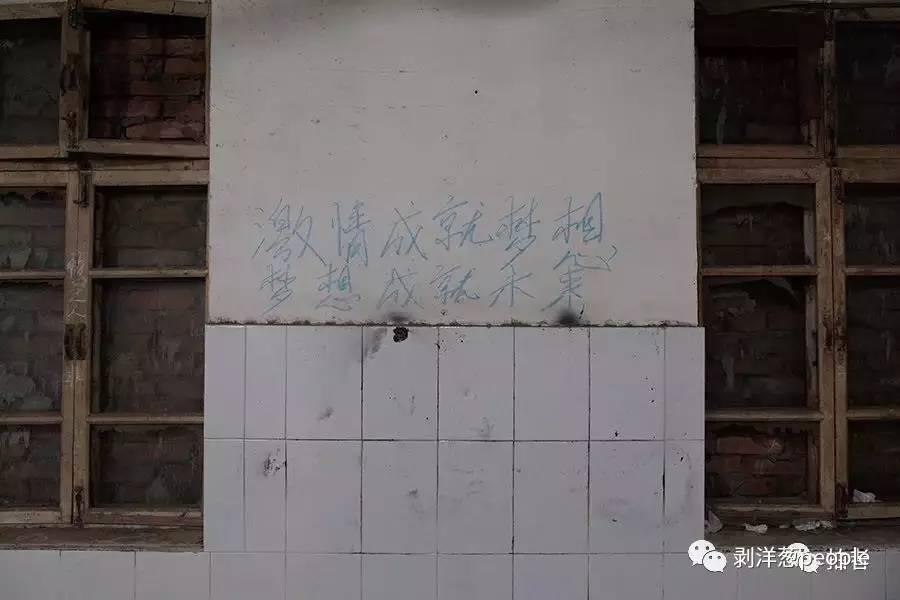 激情成就梦想
梦想成就未来
剥洋葱people